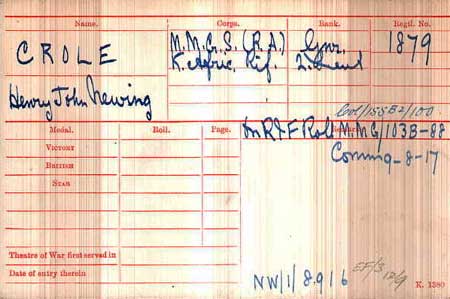 Name. Corps. Rank. Regtl. No.
CROLE M.M.G.S. (R.A.) Gnr. 1879
K. Afric. Rif. 2/Lieut
Henry John Newing
Medal. Roll. Page. Remarks.
Victory
British
Star
On R & F Roll M.M.G/103B-88
-8-17
Theatre of War first served in
Date of entry therein
NW/1/8916
EF/3 12/9
K. 1380